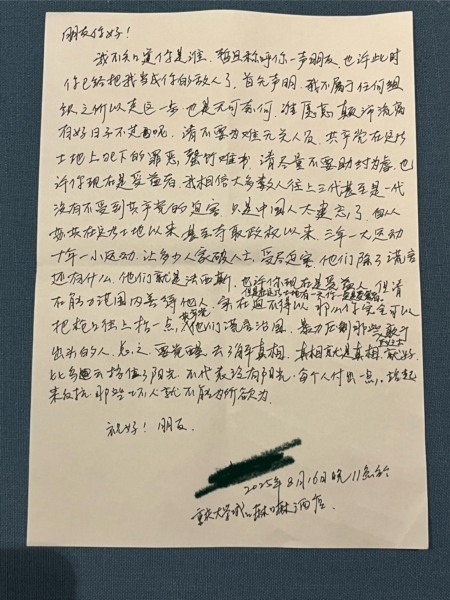 朋友你好!
我不知道你是谁,暂且称呼你一声朋友,也许此时
你已经把我当成你的敌人了,首先声明,我不属于任何组
织之所以走这一步也是无可奈何,谁愿意颠沛流离
有好日子不过呢,请不要为难无关人员,共产党在这片
土地上犯下的罪恶,罄竹难书,请尽量不要助纣为虐,也
许你现在是受益者,我相信大多数人往上三代甚至是一代
没有不受到共产党的迫害,只是中国人太健忘了,自从
在这片土地以来,甚至夺取政权以来,三年一大运动
十年一小运动,让多少人家破人亡,受尽迫害,他们除了谎言
还有什么,他们就是法西斯,也许你现在是受益人,但请
但是在这片土地有一天你一定是受害者
在能力范围内善待他人,实在迫不得以,那么你完全可以
把枪口往上抬一点,共产党他们谎言治国,暴力压制那些敢于
出头的人,总之,要觉醒去了解真相,真相就是真相,就好
比乌云挡住了阳光,不代表没有阳光,每个人付出一点,站起
来反抗那些坏人就不能为所欲为。
祝好!朋友。
2025年8月16日晚11点于
重庆大学城